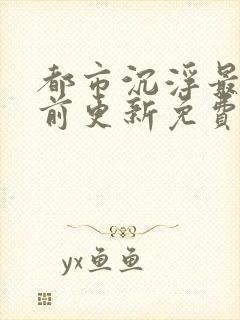 都市沉浮最
前更新免费
yx鱼鱼